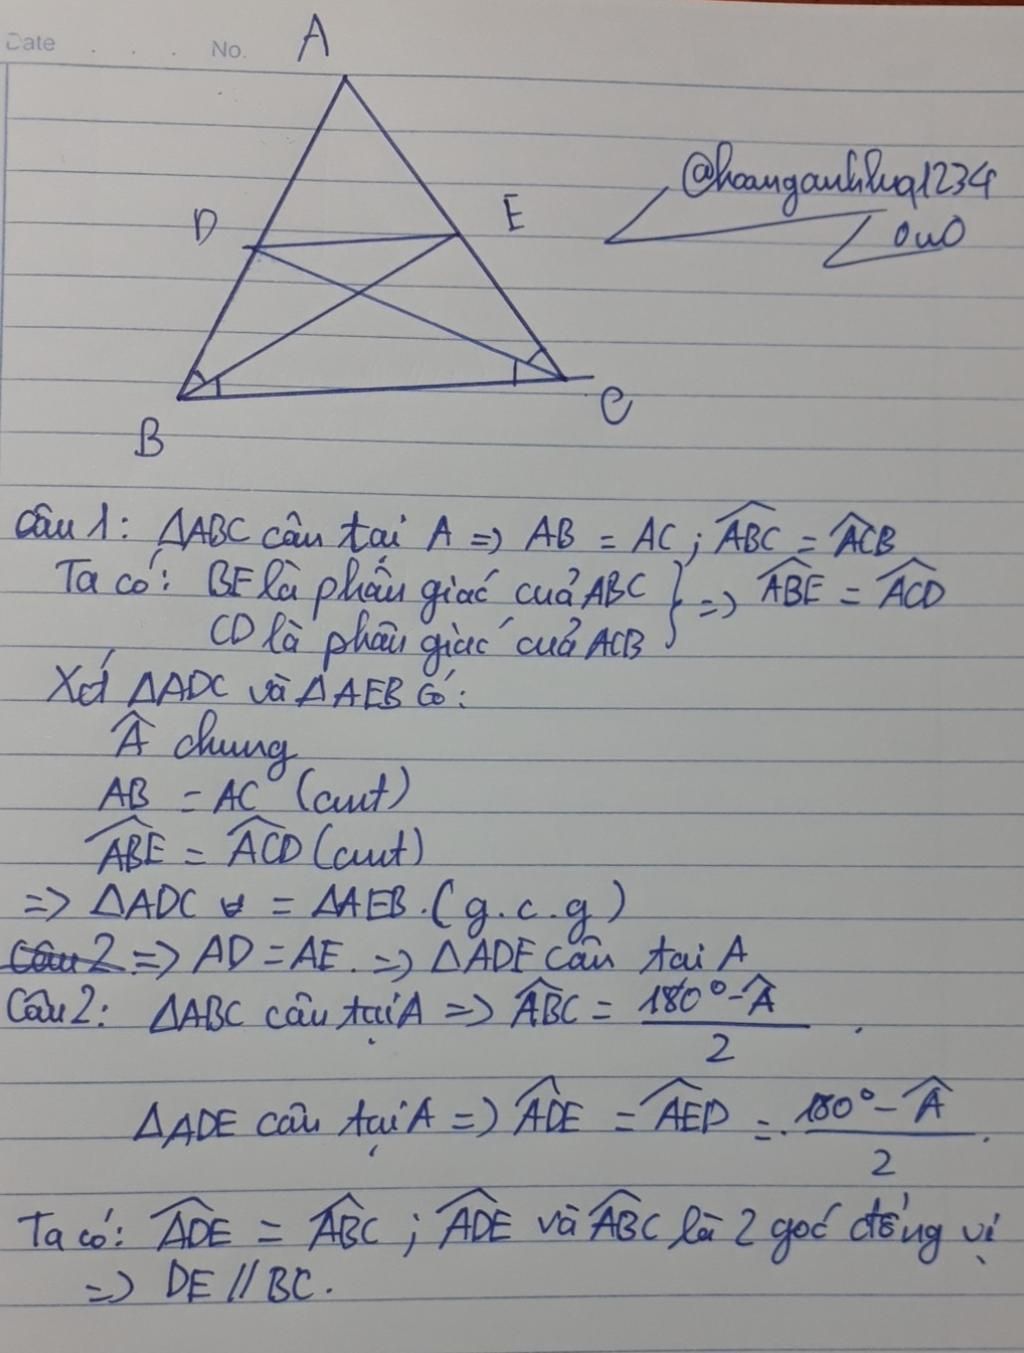 Date . . . No.
A
@hoanganhhuq1234
D E
OuO
B C
Câu 1: ΔABC cân tại A => AB = AC ; \widehat{ABC} = \widehat{ACB}
Ta có: BE là phân giác của ABC } => \widehat{ABE} = \widehat{ACD}
CD là phân giác của ACB
Xét ΔADC và ΔAEB có:
\widehat{A} chung
AB = AC (cmt)
\widehat{ABE} = \widehat{ACD} (cmt)
=> ΔADC = ΔAEB. (g.c.g)
Câu 2 => AD = AE. => ΔADE cân tai A
Câu 2: ΔABC cân tại A => \widehat{ABC} = \frac{180° - \widehat{A}}{2}
ΔADE cân tại A => \widehat{ADE} = \widehat{AED} = \frac{180° - \widehat{A}}{2}
Ta có: \widehat{ADE} = \widehat{ABC} ; \widehat{ADE} và \widehat{ABC} là 2 góc đồng vị
=> DE // BC.